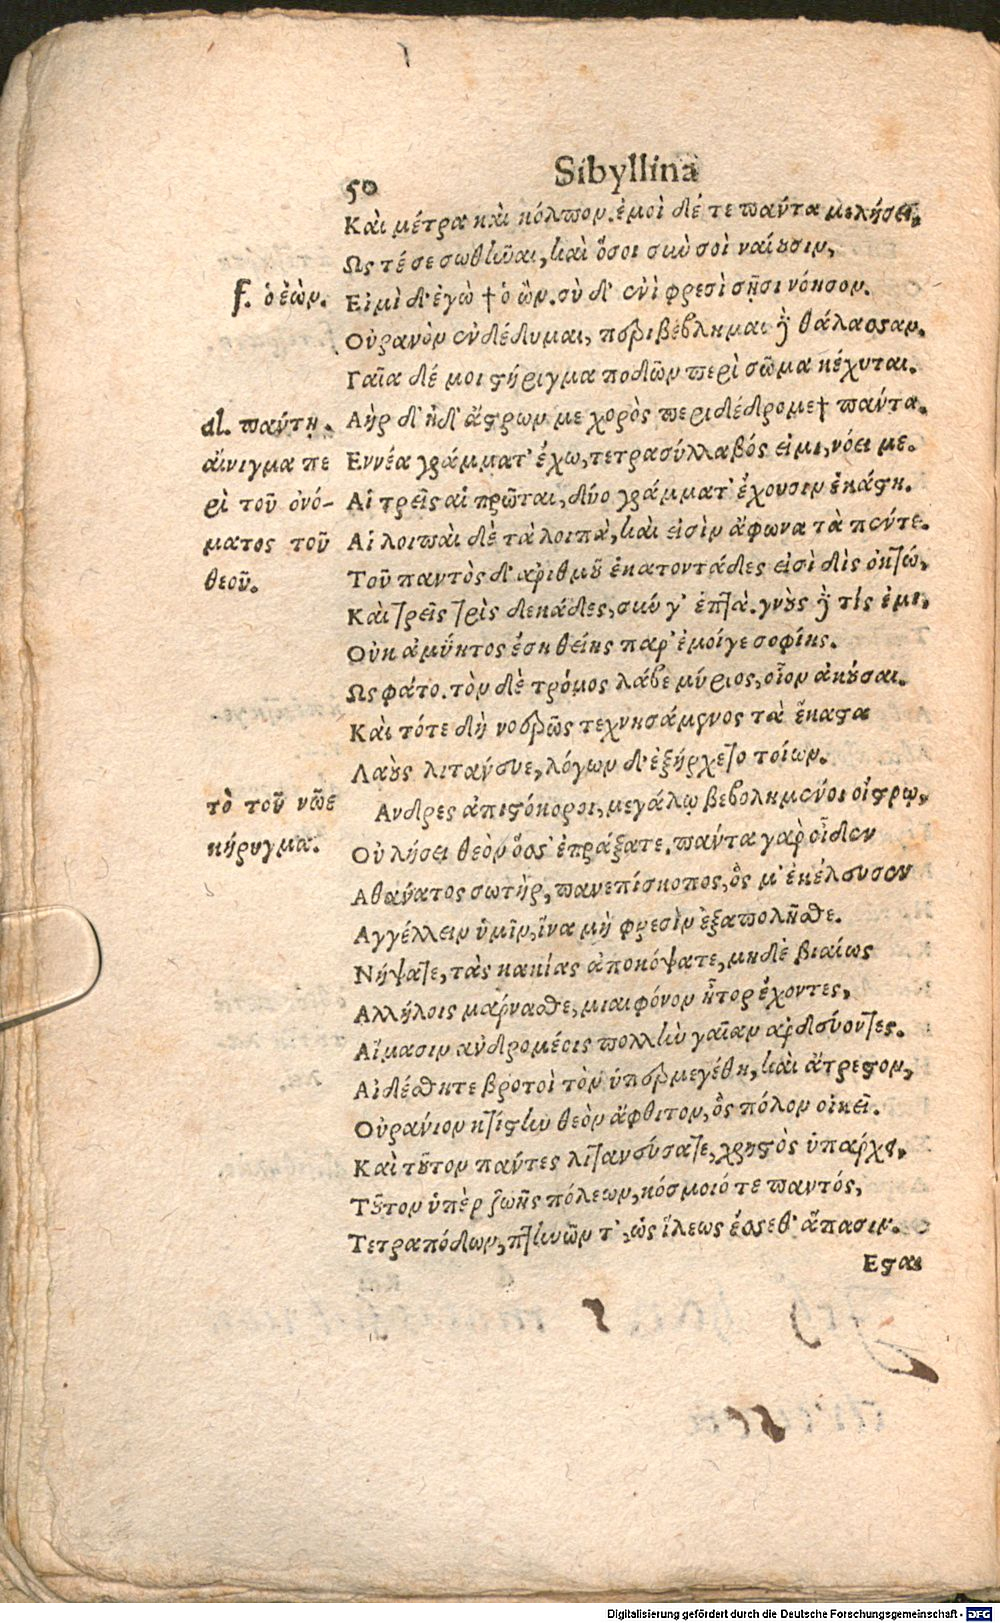 50 Sibyllina
Καὶ μέτρα καὶ κόλπον. ἐμοὶ δέ τε πάντα μελήσει,
Ως τέ σε σωθῆναι, καὶ ὅσοι σὺν σοὶ ναίουσιν,
f. ὁ ἐὼν.
Εἰμὶ δ' ἐγὼ † ὁ ὢν. σὺ δ' ἐνὶ φρεσὶ σῇσι νόησον.
Οὐρανὸν ἐνδέδυμαι, περιβέβλημαι δὲ θάλασσαν.
Γαῖα δέ μοι στήριγμα ποδῶν περὶ σῶμα κέχυται.
al. πάντῃ.
Αὴρ δ' ἠδ' ἄστρων με χορὸς περιδέδρομε† πάντα.
αἴνιγμα πε
Εννέα γράμματ' ἔχω, τετρασύλλαβός εἰμι, νόει με.
ρὶ τοῦ ὀνό-
Αἱ τρεῖς αἱ πρῶται, δύο γράμματ' ἔχουσιν ἑκάστη.
ματος τοῦ
Αἱ λοιπαὶ δὲ τὰ λοιπὰ, καὶ εἰσὶν ἄφωνα τὰ πέντε.
θεοῦ.
Τοῦ παντὸς δ' ἀριθμοῦ ἑκατοντάδες εἰσὶ δὶς ὀκτώ,
Καὶ τρεῖς τρὶς δεκάδες, σύν γ' ἑπτά. γνοὺς δὲ τίς εἰμι,
Οὐκ ἀμύητος ἔσῃ θείης παρ' ἐμοίγε σοφίης.
Ως φάτο. τὸν δὲ τρόμος λάβε μύριος, οἷον ἀκοῦσαι.
Καὶ τότε δὴ νοερῶς τεχνησάμενος τὰ ἕκαστα
Λαοὺς λιτάνευε, λόγων δ' ἐξήρχετο τοίων.
τὸ τοῦ νῶε
Ανδρες ἀπιστόκοροι, μεγάλῳ βεβολημένοι οἴστρῳ,
κήρυγμα.
Οὐ λήσει θεὸν ὅσσ' ἐπράξατε. πάντα γὰρ οἶδεν
Αθάνατος σωτὴρ, πανεπίσκοπος, ὅς μ' ἐκέλευσεν
Αγγέλλειν ὑμῖν, ἵνα μὴ φρεσὶν ἐξαπολῆσθε.
Νήψατε, τὰς κακίας ἀποκόψατε, μηδὲ βιαίως
Αλλήλοις μάρνασθε, μιαιφόνον ἦτορ ἔχοντες,
Αἵμασιν ἀνδρομέοις πολλὴν γαῖαν ἀρδεύοντες.
Αἰδέσθητε βροτοὶ τὸν ὑπερμεγέθη, καὶ ἄτρεστον,
Οὐράνιον κτίστην θεὸν ἄφθιτον, ὃς πόλον οἰκεῖ.
Καὶ τοῦτον πάντες λιτανεύσατε, χρηστὸς ὑπάρχει,
Τοῦτον ὑπὲρ ζωῆς πόλεων, κόσμοιό τε παντός,
Τετραπόδων, πτηνῶν τ', ὡς ἵλεως ἔσσεθ' ἅπασιν.
Εσται
Digitalisierung gefördert durch die Deutsche Forschungsgemeinschaft - DFG